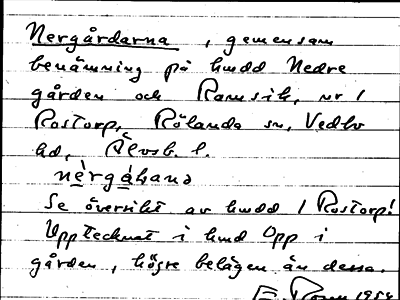 Nergårdarna, gemensam
benämning på hmdd Nedre
gården och Ramsik, nr 1
Rostorp, Rölanda sn, Vedbo
hd, Älvsb. l.
nè̱rgá̱ṿana
Se översikt av hmdd 1 Rostorp!
Upptecknat i hmd Opp i
gården, högre belägen än dessa.